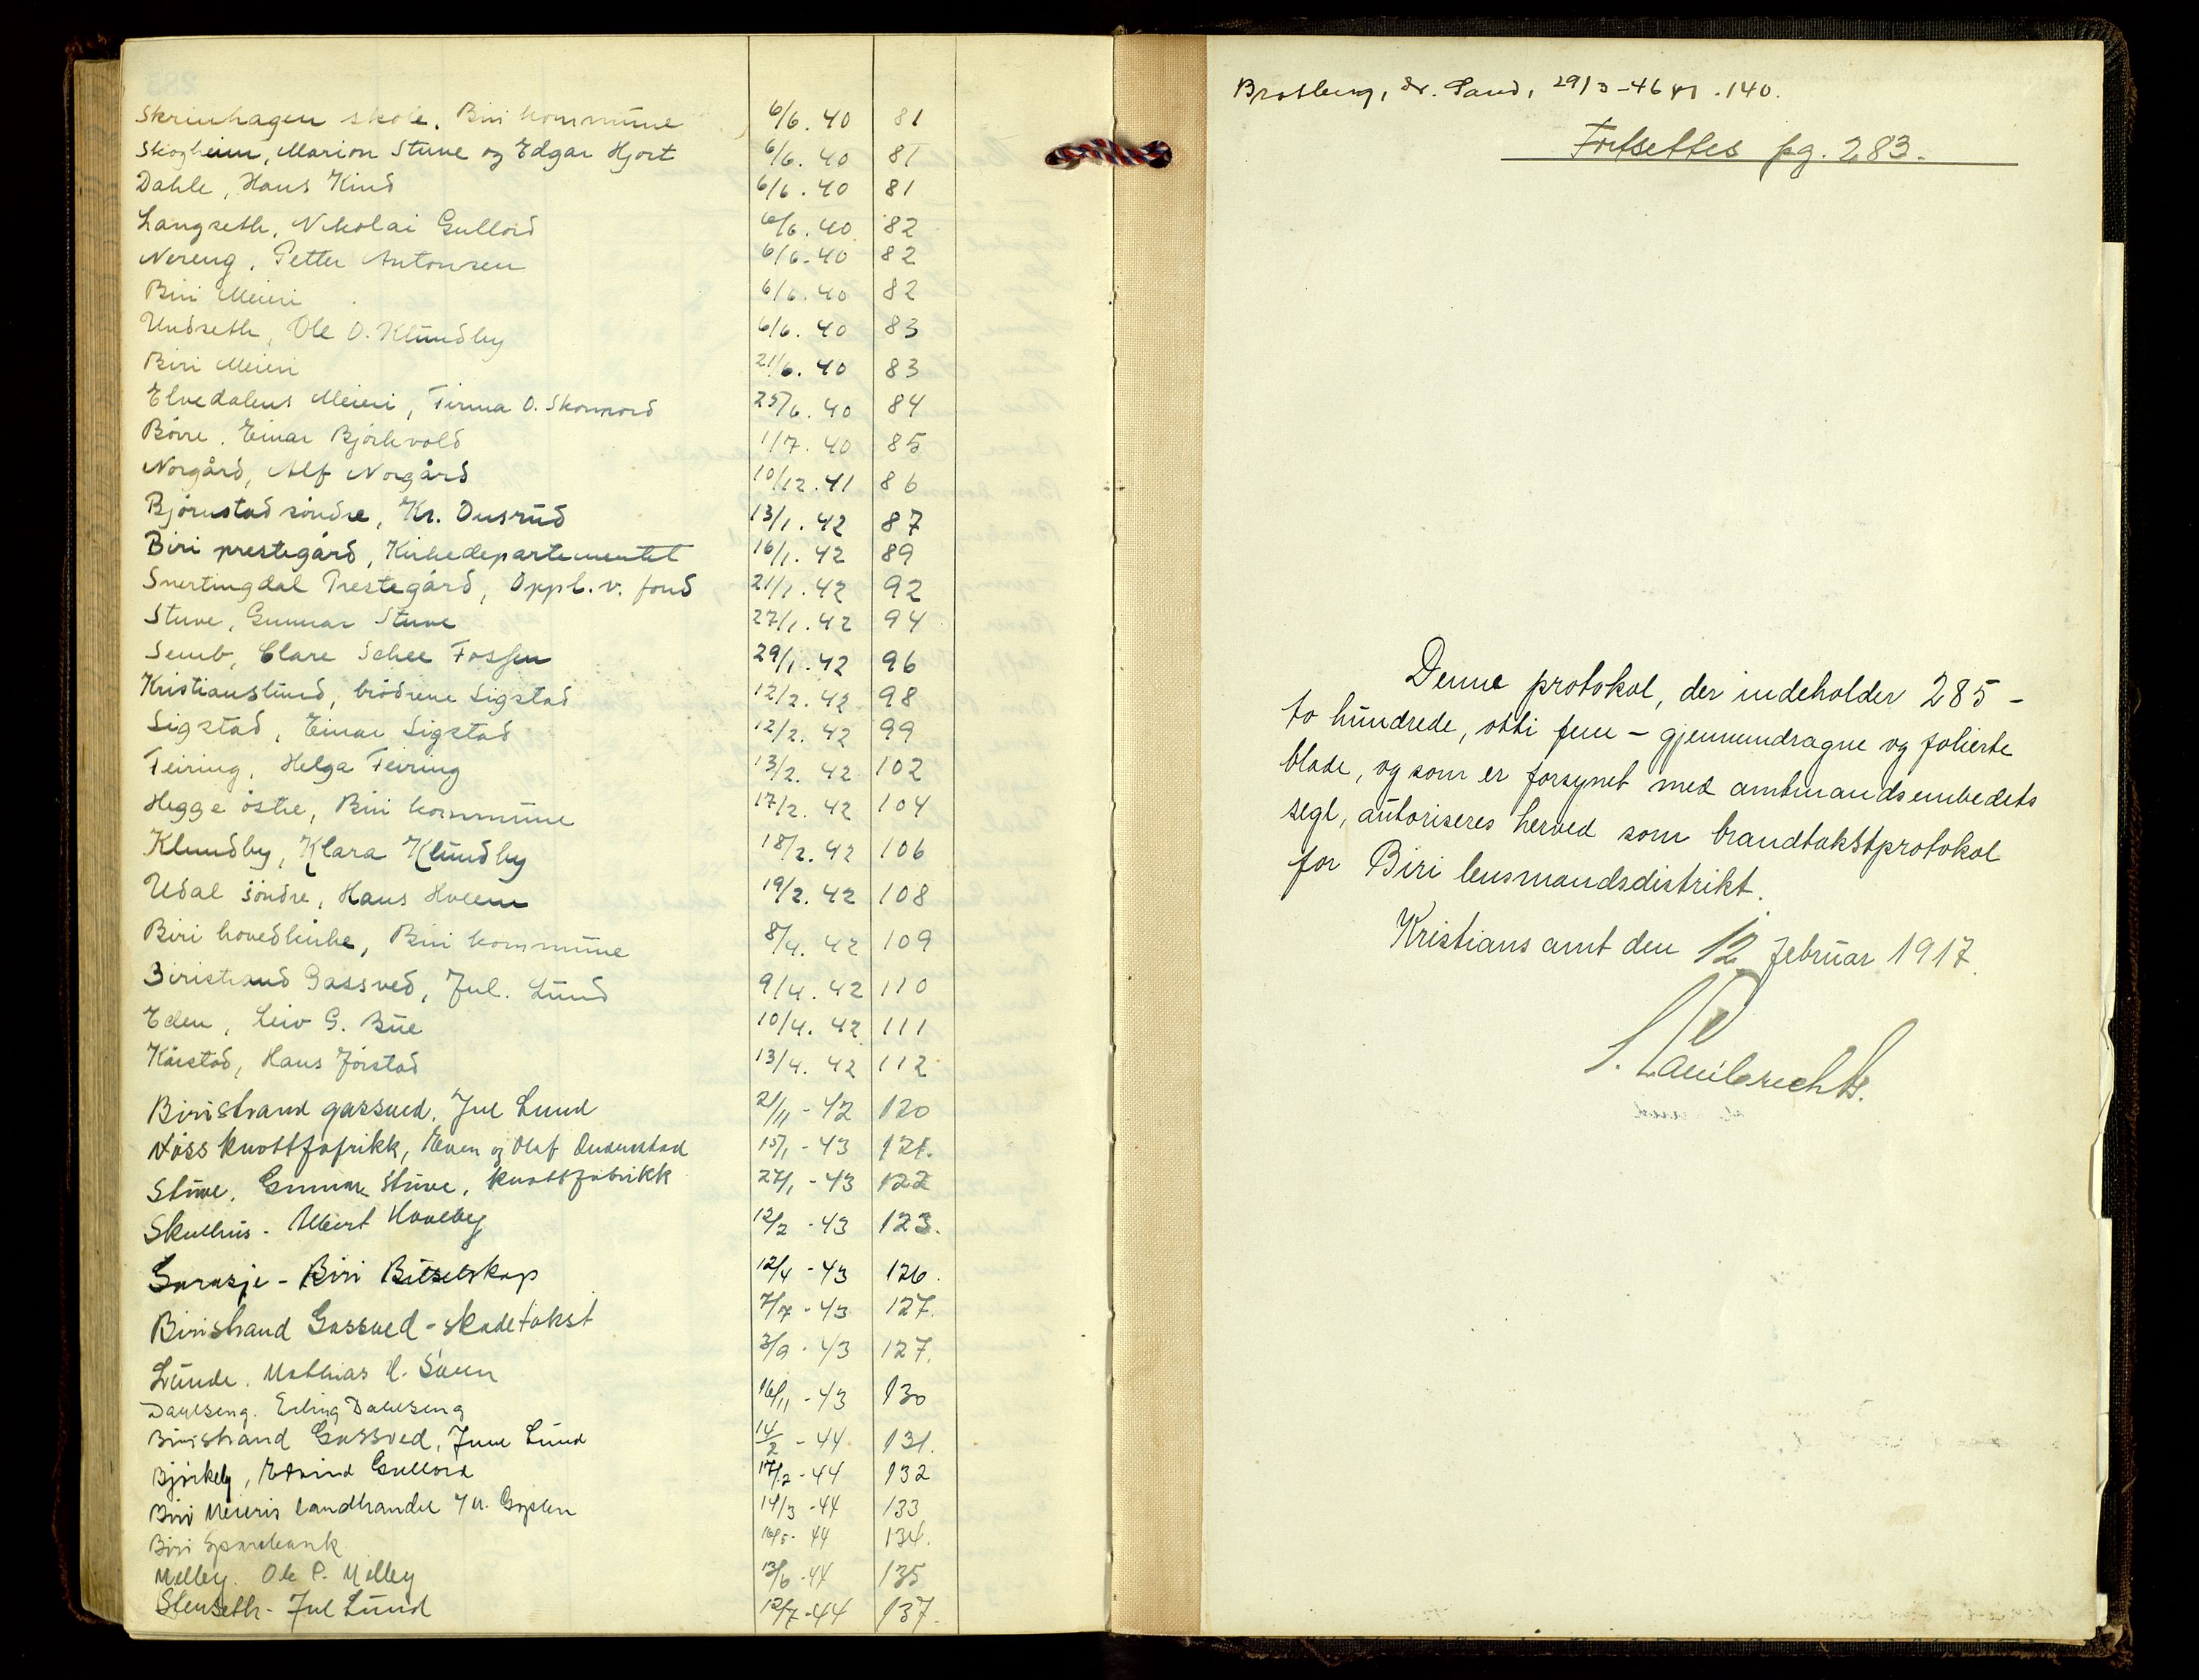 Skrinhagen skole, Biri kommune 6/6. 40 81
Skogheim, Marion Stuve og Edgar Hjort 6/6. 40 81
Dahle, Hans Kind 6/6. 40 81
Langseth, Nikolai Gullord 6/6. 40 82
Nereng, Petter Antonsen 6/6. 40 82
Biri Meieri 6/6. 40 82
Undseth, Ole O. Klundby 6/6. 40 83
Biri Meieri 21/6. 40 83
Elvedalens Meieri, Firma O. Skonnord 25/6. 40 84
Bövre, Einar Björkvold 1/7. 40 85
Norgård, Alf Norgård 10/12. 41 86
Björnstad söndre, Kr. Onsrud 13/1. 42 87
Biri prestegård, Kirkedepartementet 16/1. 42 89
Snertingdal Prestegård, Oppl. v. fond 21/1. 42 92
Stuve, Gunnar Stuve 27/1. 42 94
Semb, Clare Schee Fossen 29/1. 42 96
Kristianslund, brödrene Sigstad 12/2. 42 98
Sigstad, Einar Sigstad 12/2. 42 99
Feiring, Helga Feiring 13/2. 42 102
Hegge östre, Biri kommune 17/2. 42 104
Klundby, Klara Klundby 18/2. 42 106
Udal söndre, Hans Hveem 19/2. 42 108
Biri hovedkirke, Biri kommune 8/4. 42 109
Biristrand Gassved, Jul. Lund 9/4. 42 110
Eden, Leiv G. Bue 10/4. 42 111
Kårstad, Hans Jörstad 13/4. 42 112
Biristrand gassved, Jul Lund 21/11 - 42 120
Nöss knottfafrikk, Even og Olaf 15/1 - 43 121.
Stuve, Gunnar Stuve, knottfabrikk 27/1 - 43 122
Skulhus - Albert Hovelby 12/2 - 43 123.
Garasje - Biri Bilselskap 12/4 - 43 126.
Biristrand Gassved - skadetakst 7/7 - 43 127.
Lunde. Mathias H. Sveen 3/9 - 43 127.
Dahlseng. Erling Dahlseng 16/11 - 43 130
Biristrand Gassved, Jul Lund 14/2 - 44 131.
Björkely, Eivind Gullord 17/2 - 44 132
Biri Meieris landhandel 14/3 - 44 133
Biri Sparebank 16/5 - 44 134.
Melby. Ole P. Melby 13/6 - 44 135
Stenseth - Jul Lund 12/7 - 44 137.
Bratberg, Sr. Sand, 29/3 - 46 140.
Fortsettes pg. 283.
Denne protokol, der indeholder 285 -
to hundrede, otti fem - gjennemdragne og folierte
blade, og som er forsynet med amtmandsembedets
segl, autoriseres herved som brandtakstprotokol
for Biri lensmandsdistrikt.
Kristians amt den 12 februar 1917.
Lambrechts.